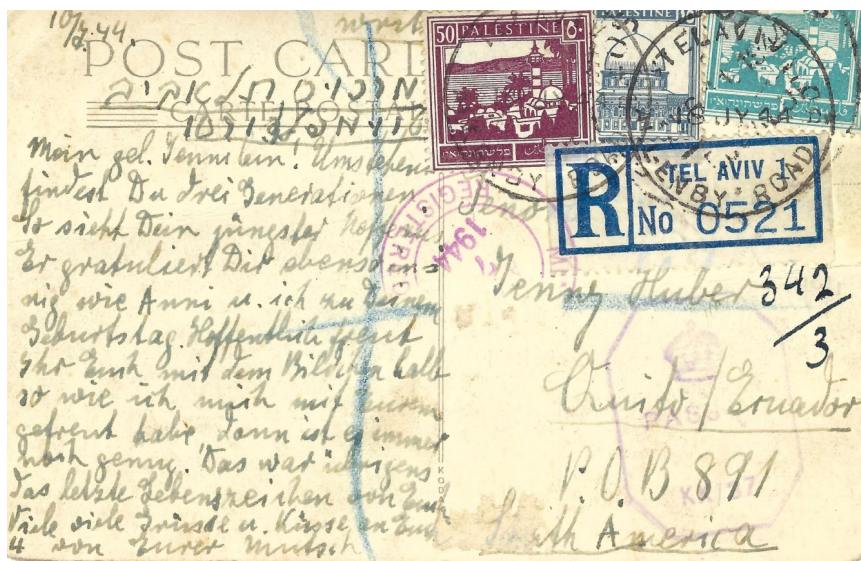 10/7.44.
POST CARD
CARTE POSTALE
תל אביב
Mein gel. Jennilein! Umstehend
findest Du drei Generationen
So sieht Dein jüngster
Er gratuliert Dir ebenso in=
nig wie Anni u. ich zu Deinem
Geburtstag. Hoffentlich freut
Ihr Euch mit dem Bildchen halb
so wie ich mich mit Eurem
gefreut habe, dann ist es immer
noch genug. Das war übrigens
das letzte Lebenszeichen von Euch
Viele viele Grüsse u. Küsse an Euch
4 von Eurer Mutsch
50 PALESTINE ٥٠
TEL AVIV
ALLENBY ROAD
REGISTERED
1944
R TEL AVIV 1
No 0521
Jenny Huber
342/3
Quito/Ecuador
P.O.B 891
South America
PASSED
K
KODAK